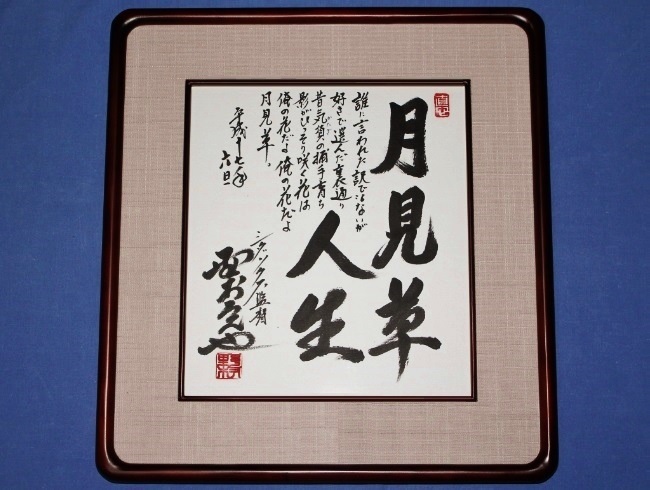 月見草
人生
誰に言われた訳ではないが
好きで選んだ裏通り
昔気質の捕手育ち
影がひっそり咲く花は
俺の花だよ 俺の花だよ
月見草。
平成十七年
シダックス監督
野村克也